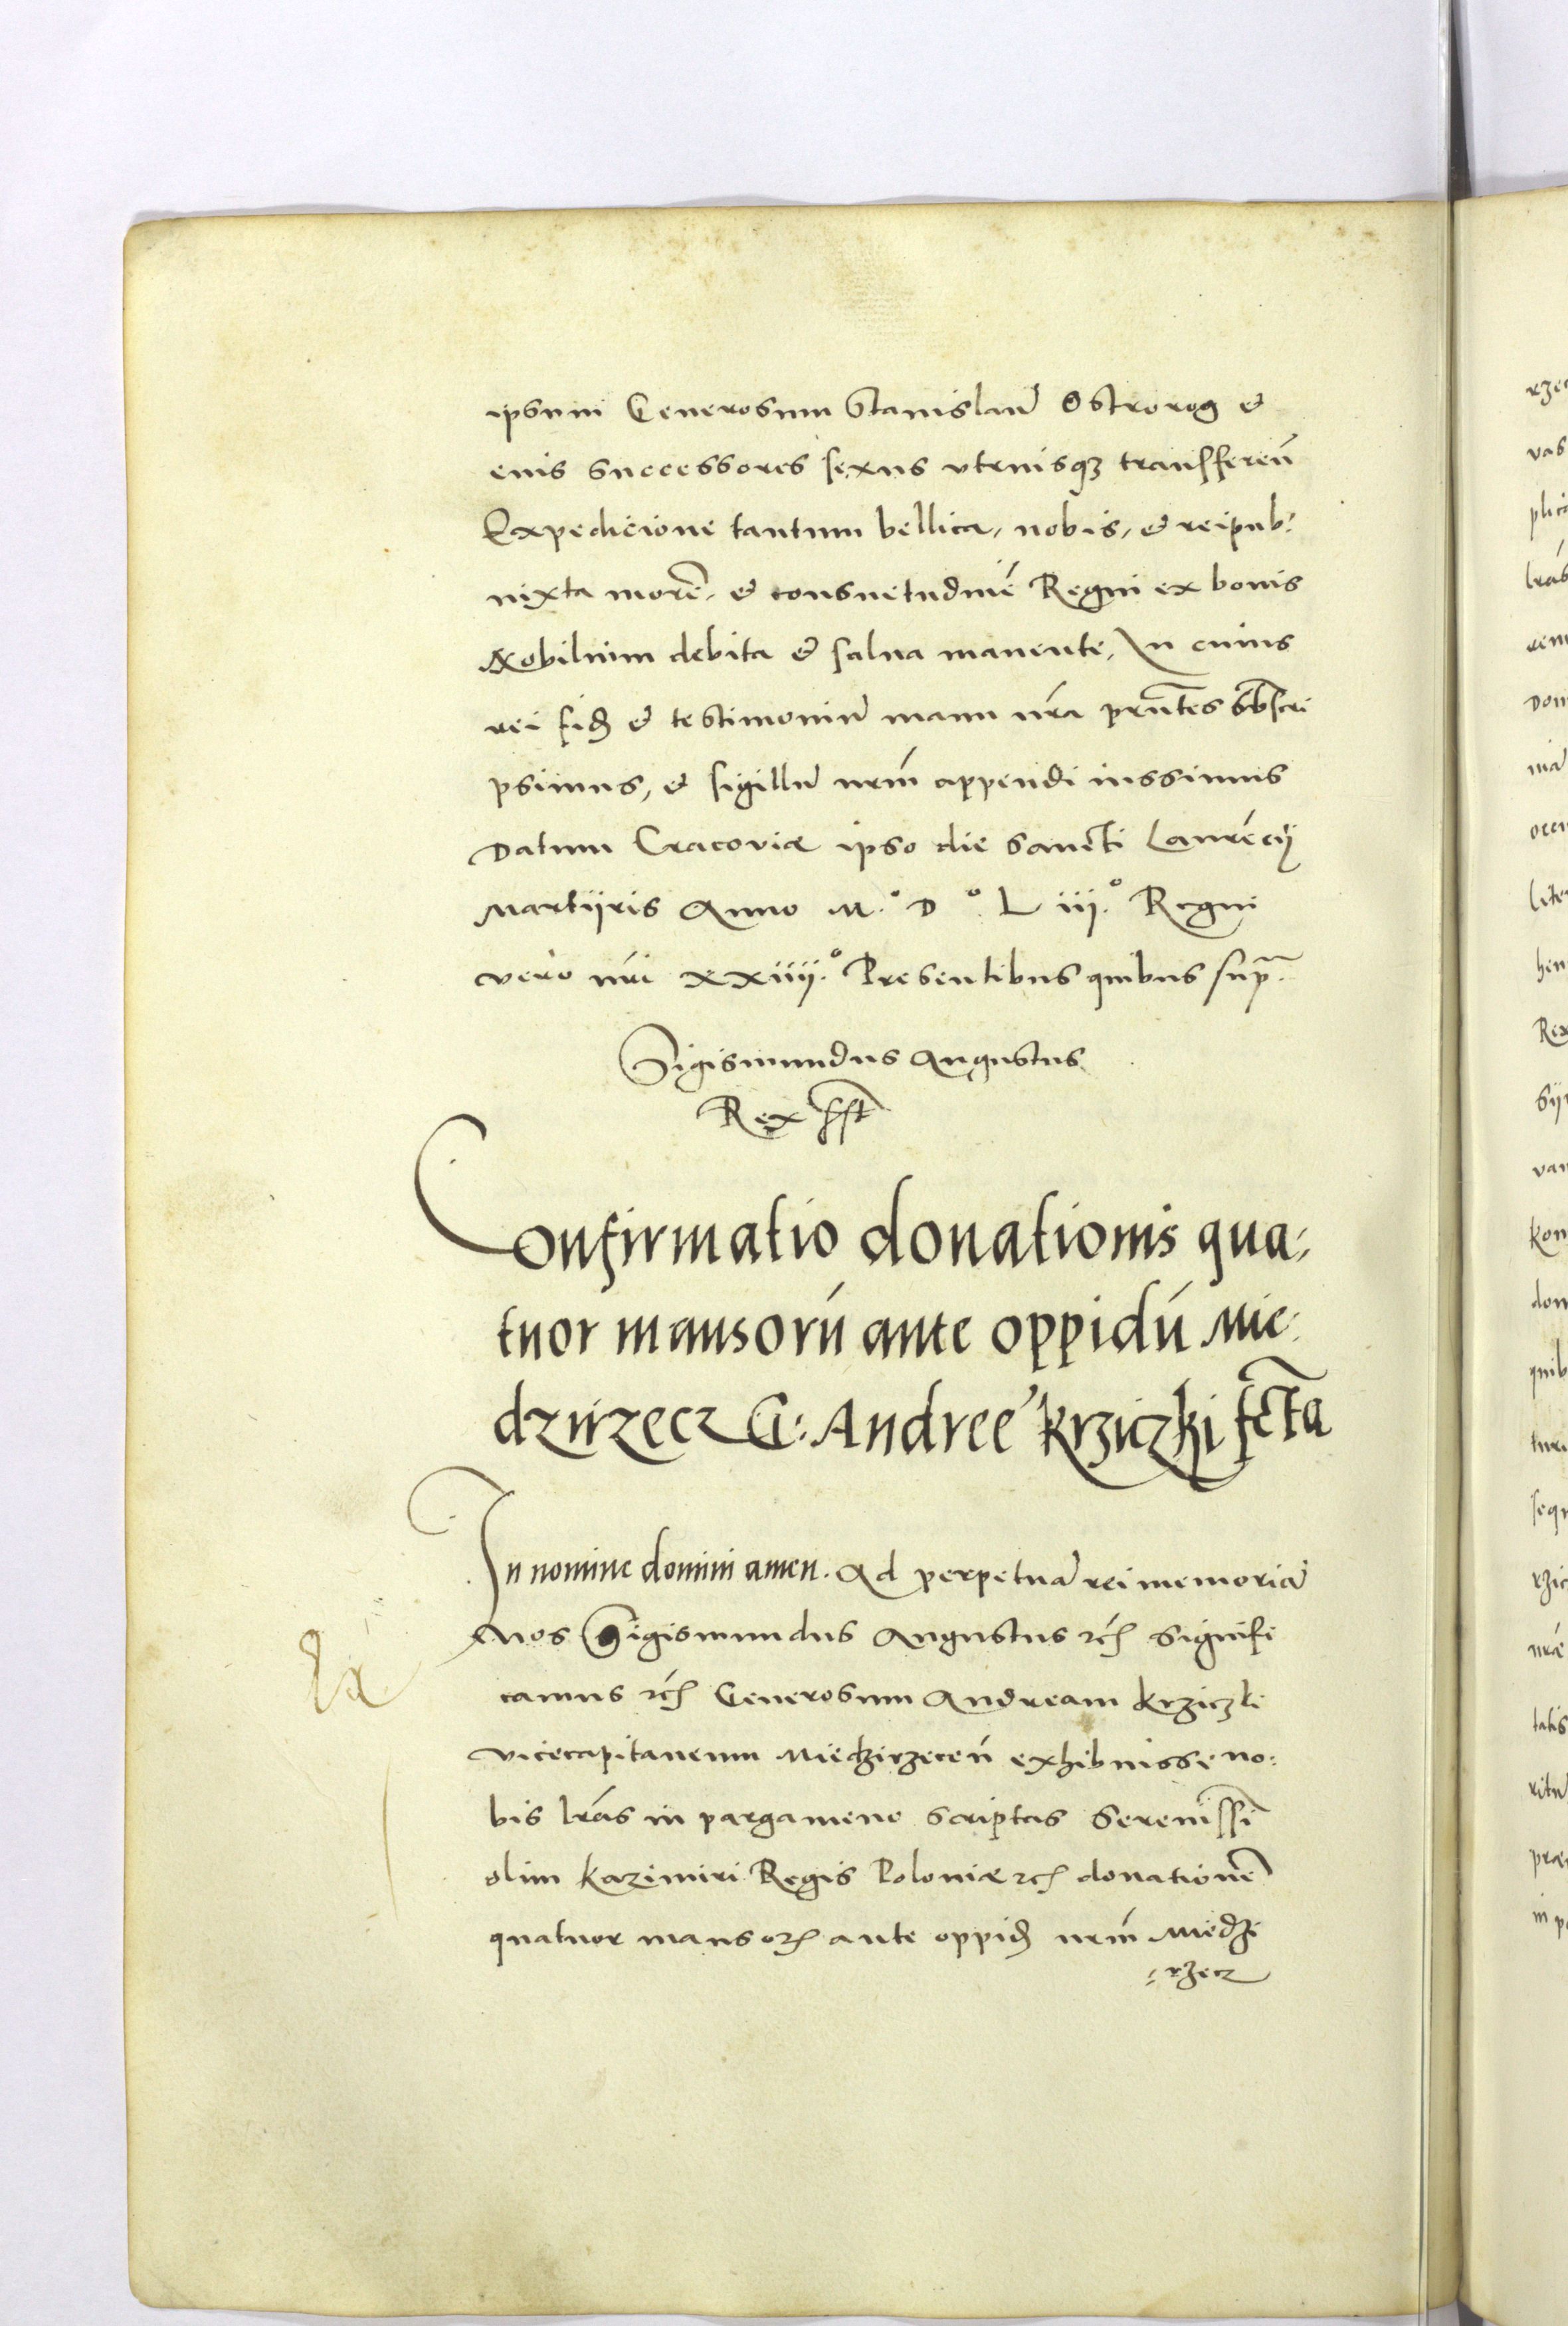 ipsum Generosum Stanislaũ Ostrorog et
eius successores sexus vtriusq; transfereñ
Expedicione tantum bellica, nobis, et reipub:
iuxta morẽ, et consuetudinẽ Regni ex bonis
Nobilium debita et salua manente, In cuius
rei fid et testimoniũ manu nrã prñtes sbscri
psimus, et sigillũ nrm̃ appendi iussimus
Datum Cracoviæ ipso die Sancti Laurẽcij
Martijris Anno M.° D.° L iij.° Regni
vero nrĩ xxiiij.° Presentibus quibus supr̃.
Sigismundus Augustus
Rex sst
Confirmatio donationis qua,
tuor mansorũ ante oppidũ Mie:
dzirzecz G: Andree Krziczki fcta
In nomine domini amen. Ad perpetuã rei memoriã
Nos Sigismundus Augustus etc Signifi
camus etc Generosum Andream Krziczki
vicecapitaneum Miedzirzeceñ exhibuisse no:
bis lrãs in pargameno scriptas Serenissi
olim Kazimiri Regis Poloniæ etc donationẽ
quatuor mansor ante oppid nrm̃ Miedzi
:rzecz